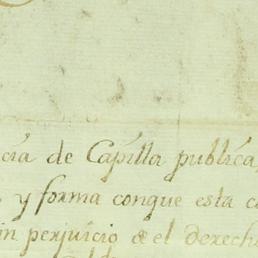 cia de Capilla publica,
y forma conque esta c
in perjuicio de el derech